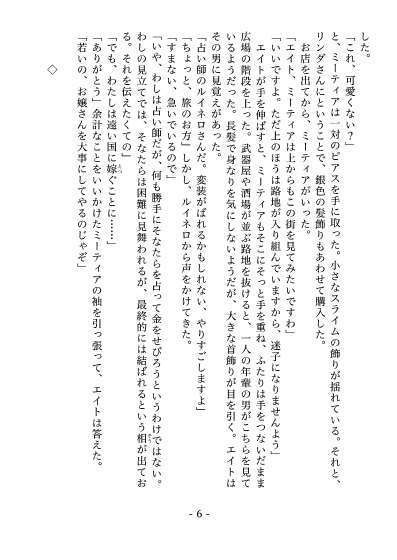 した。
「これ、可愛くない？」
と、ミーティアは一対のピアスを手に取った。小さなスライムの飾りが揺れている。それと、
リンダさんにということで、銀色の髪飾りもあわせて購入した。
お店を出てから、ミーティアがいった。
「エイト、ミーティアは上からもこの街を見てみたいですわ」
「いいですよ。ただ上のほうは路地が入り組んでいますから、迷子になりませんよう」
エイトが手を伸ばすと、ミーティアもそこにそっと手を重ね、ふたりは手をつないだまま
広場の階段を上った。武器屋や酒場が並ぶ路地を抜けると、一人の年輩の男がこちらを見て
いるようだった。長髪で身なりを気にしないようだが、大きな首飾りが目を引く。エイトは
その男に見覚えがあった。
「占い師のルイネロさんだ。変装がばれるかもしれない、やりすごしますよ」
「ちょっと、旅のお方」しかし、ルイネロから声をかけてきた。
「すまない、急いでいるので」
「いや、わしは占い師だが、何も勝手にそなたらを占って金をせびろうというわけではない。
わしの見立てでは、そなたらは困難に見舞われるが、最終的には結ばれるという相が出てお
る。それを伝えたくての」
「でも、わたしは遠い国に嫁ぐことに……」
「ありがとう」余計なことをいいかけたミーティアの袖を引っ張って、エイトは答えた。
「若いの、お嬢さんを大事にしてやるのじゃぞ」
◇
- 6 -